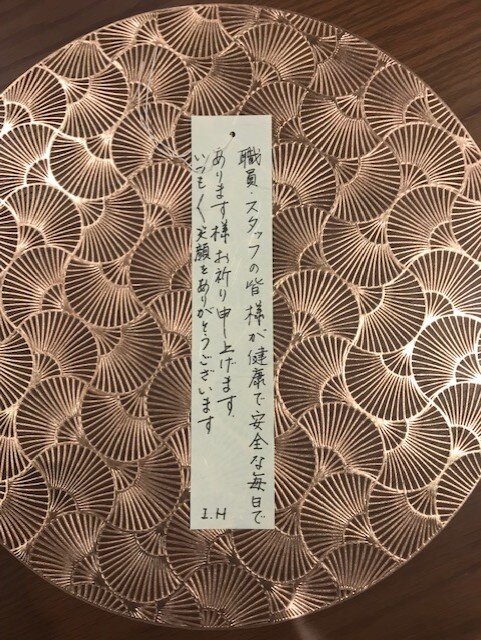 職員・スタッフの皆様が健康で安全な毎日で
あります様お祈り申し上げます.
いつもく笑顔をありがとうございます
I.H